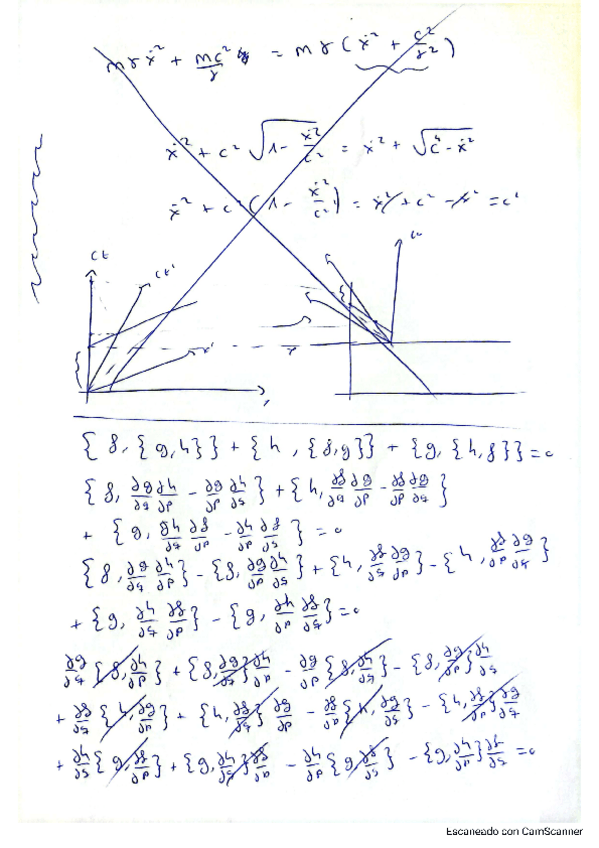 mγẋ² + mc²/γ = mγ(ẋ² + c²/γ²)
ẋ² + c² √(1 - ẋ²/c²) = ẋ² + √(c⁴ - ẋ²)
ẋ² + c² (1 - ẋ²/c²) = ẋ² + c² - ẋ² = c²
ct
ct'
x'
{f, {g,h}} + {h, {f,g}} + {g, {h,f}} = 0
{f, ∂g/∂q ∂h/∂p - ∂g/∂p ∂h/∂q} + {h, ∂f/∂q ∂g/∂p - ∂f/∂p ∂g/∂q}
+ {g, ∂h/∂q ∂f/∂p - ∂h/∂p ∂f/∂q} = 0
{f, ∂g/∂q ∂h/∂p} - {f, ∂g/∂p ∂h/∂q} + {h, ∂f/∂q ∂g/∂p} - {h, ∂f/∂p ∂g/∂q}
+ {g, ∂h/∂q ∂f/∂p} - {g, ∂h/∂p ∂f/∂q} = 0
∂g/∂q {f, ∂h/∂p} + {f, ∂g/∂q} ∂h/∂p - ∂g/∂p {f, ∂h/∂q} - {f, ∂g/∂p} ∂h/∂q
+ ∂f/∂q {h, ∂g/∂p} + {h, ∂f/∂q} ∂g/∂p - ∂f/∂p {h, ∂g/∂q} - {h, ∂f/∂p} ∂g/∂q
+ ∂h/∂q {g, ∂f/∂p} + {g, ∂h/∂q} ∂f/∂p - ∂h/∂p {g, ∂f/∂q} - {g, ∂h/∂p} ∂f/∂q = 0
Escaneado con CamScanner